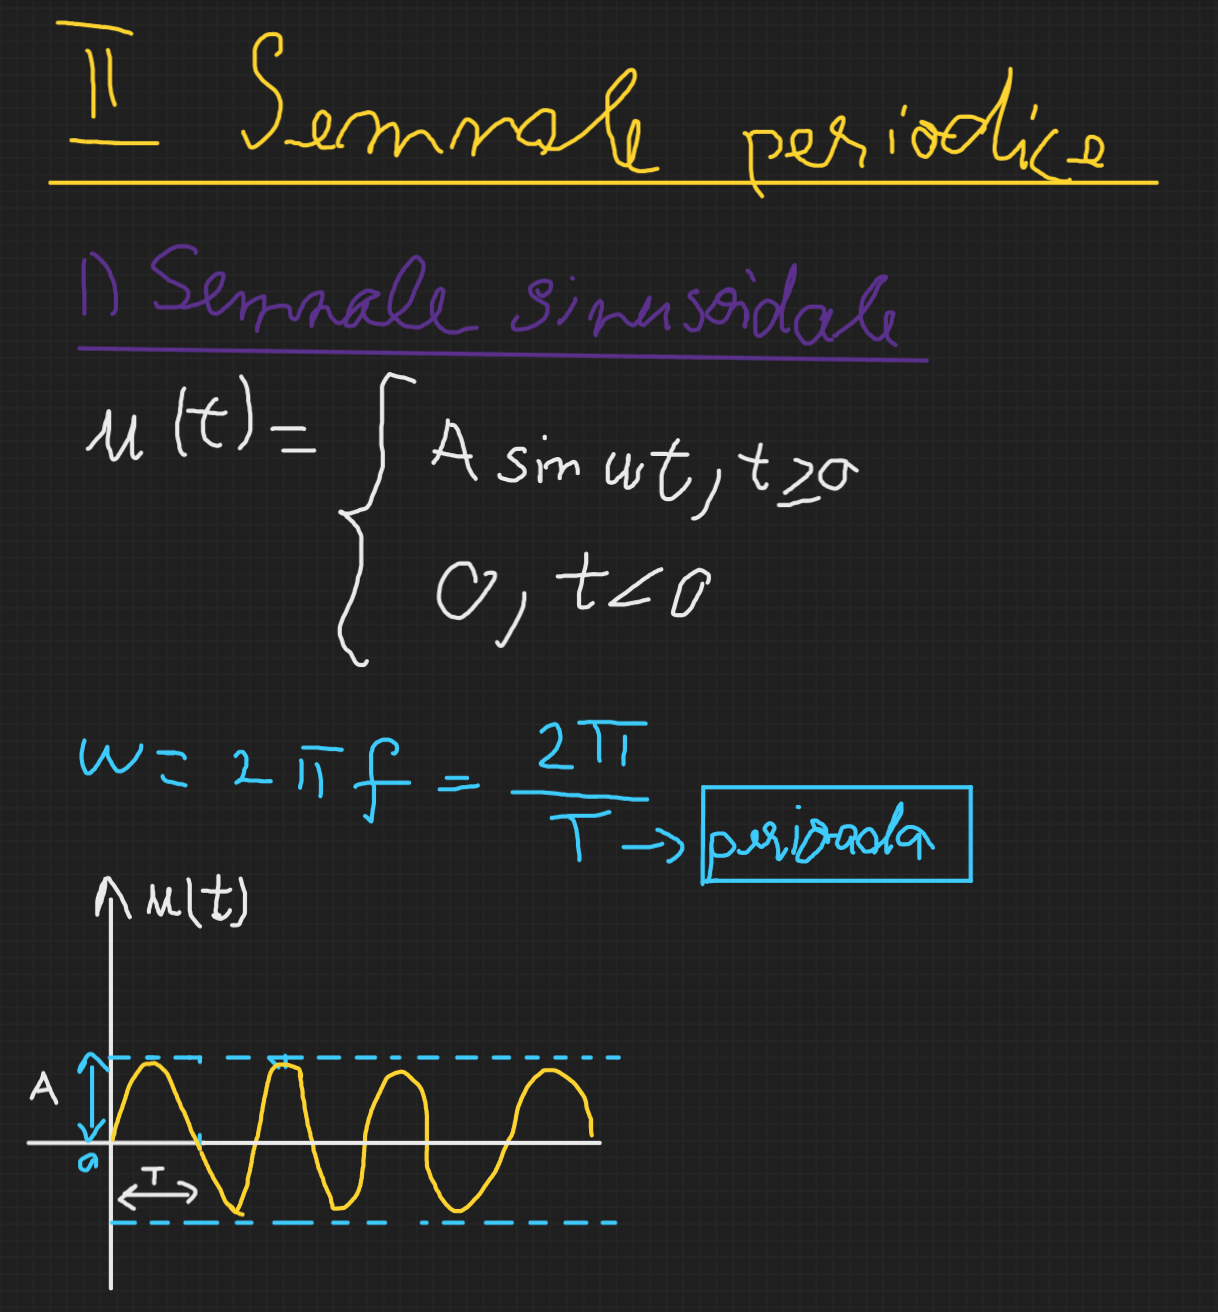 II Semnale periodice
1) Semnale sinusoidale
u(t) = { A sin ωt, t ≥ 0
0, t < 0
ω = 2πf = 2π/T → perioada
u(t)
A
0
T